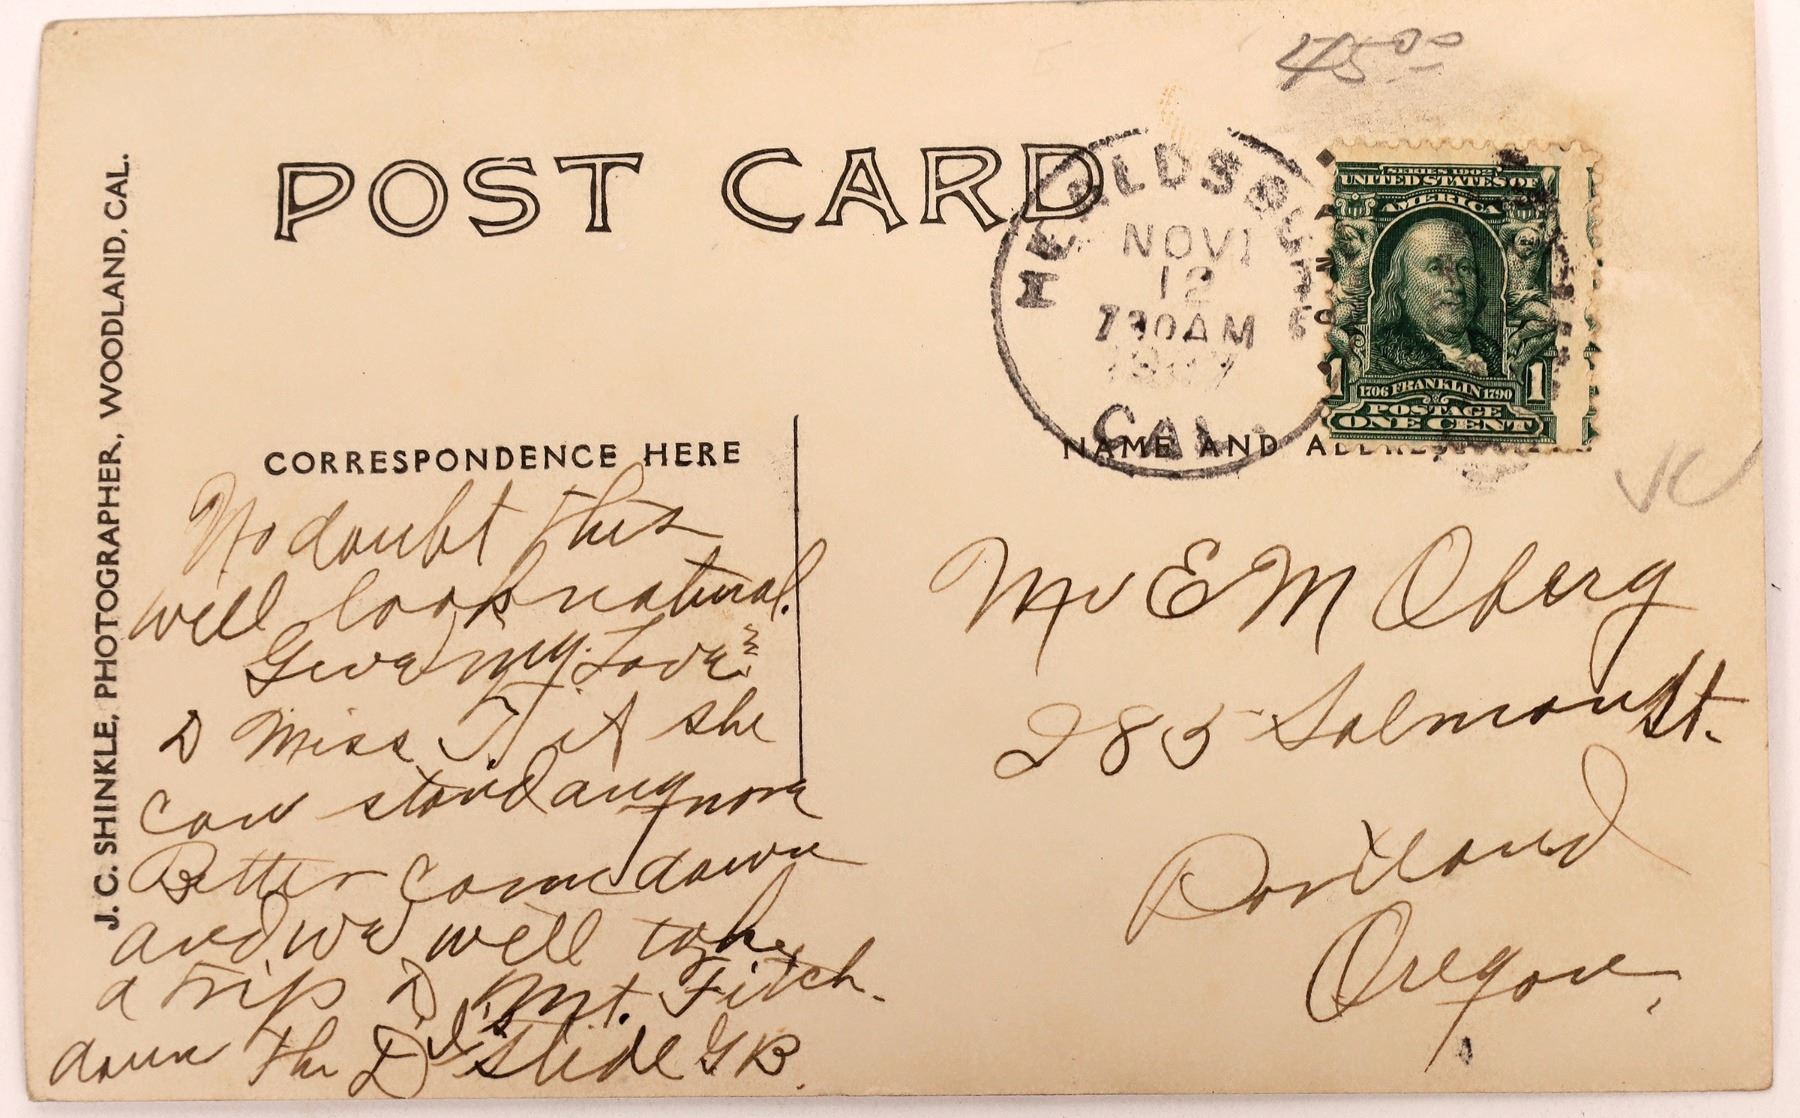 45 00
POST CARD
J. C. SHINKLE, PHOTOGRAPHER, WOODLAND, CAL.
HEALDSBURG
NOV
12
730AM
CAL.
SERIES 1902
UNITED STATES OF
AMERICA
1 1
1706 FRANKLIN 1790
POSTAGE
ONE CENT
CORRESPONDENCE HERE
NAME AND ADDRESS
No doubt this
well look natural.
Give my Love
to Miss T. if she
can stand any more
Better come down
and we well take
a trip to Mt. Fitch.
down the Devil's Slide G B.
Mr E M Oberg
285 Salmon St.
Portland
Oregon.